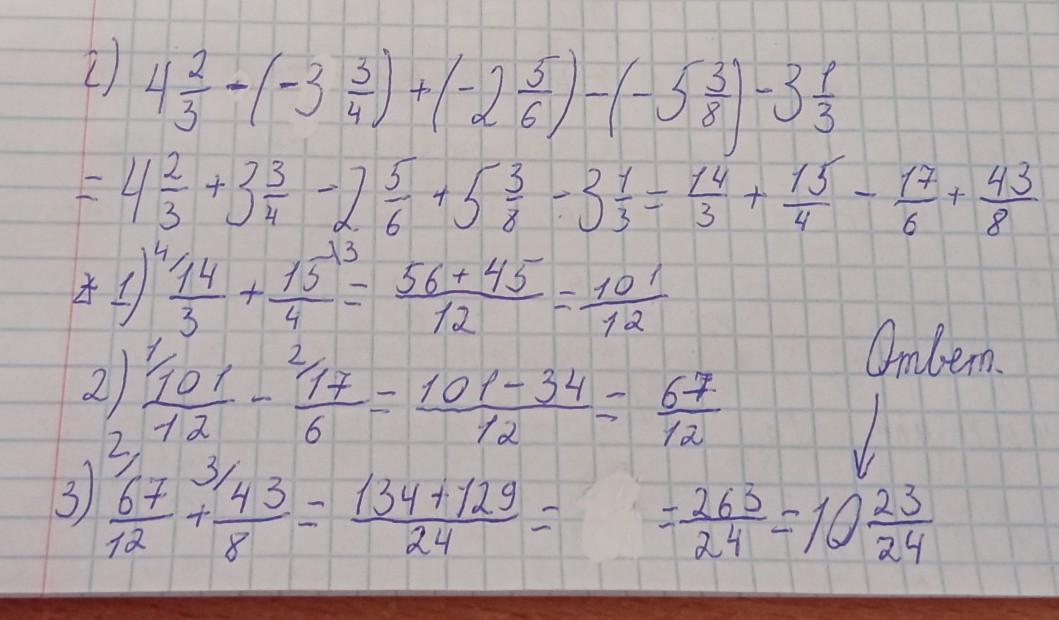 2) 4 2/3 - (-3 3/4) + (-2 5/6) - (-5 3/8) - 3 1/3
= 4 2/3 + 3 3/4 - 2 5/6 + 5 3/8 - 3 1/3 = 14/3 + 15/4 - 17/6 + 43/8
1) 4/ 14/3 + 15/4 \3 = 56+45/12 = 101/12
Ответ.
2) 1/ 101/12 - 2/ 17/6 = 101-34/12 = 67/12
3) 2/ 67/12 + 3/ 43/8 = 134+129/24 = = 263/24 = 10 23/24